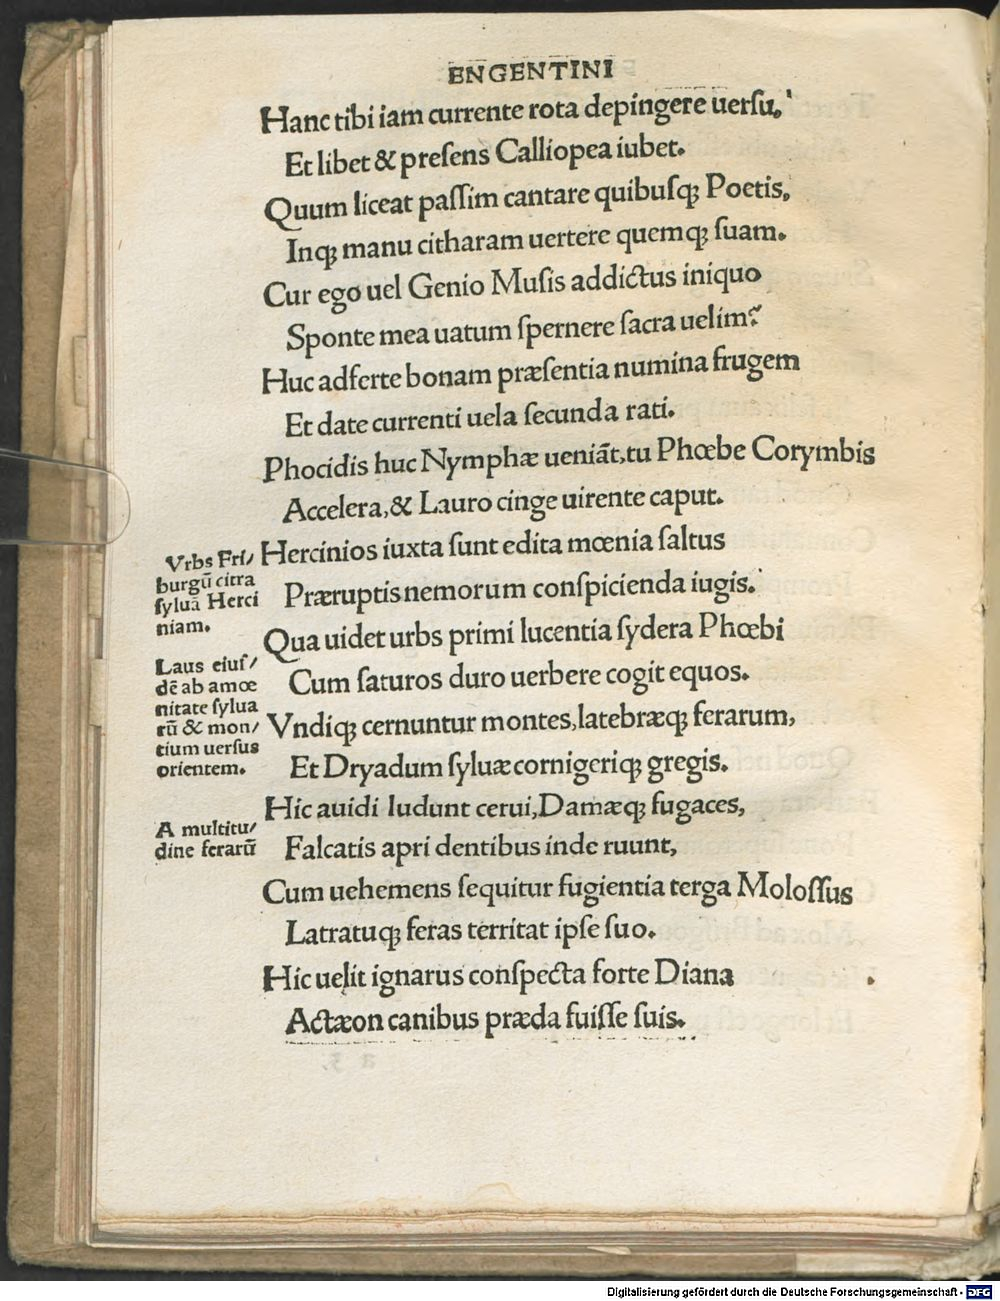 ENGENTINI
Hanc tibi iam currente rota depingere uerſu,
Et libet & preſens Calliopea iubet.
Quum liceat paſſim cantare quibuſqꝫ Poetis,
Inqꝫ manu citharam uertere quemqꝫ ſuam.
Cur ego uel Genio Muſis addictus iniquo
Sponte mea uatum ſpernere ſacra uelim?
Huc adferte bonam præſentia numina frugem
Et date currenti uela ſecunda rati.
Phocidis huc Nymphæ ueniāt, tu Phœbe Corymbis
Accelera, & Lauro cinge uirente caput.
Vrbs Fri/
burgū citra
ſyluā Herci
niam.
Hercinios iuxta ſunt edita mœnia ſaltus
Præruptis nemorum conſpicienda iugis.
Qua uidet urbs primi lucentia ſydera Phœbi
Laus eiuſ/
dē ab amœ
nitate ſylua
rū & mon/
tium uerſus
orientem.
Cum ſaturos duro uerbere cogit equos.
Vndiqꝫ cernuntur montes, latebræqꝫ ferarum,
Et Dryadum ſyluæ cornigeriqꝫ gregis.
Hic auidi ludunt cerui, Damæqꝫ fugaces,
A multitu/
dine ferarū
Falcatis apri dentibus inde ruunt,
Cum uehemens ſequitur fugientia terga Moloſſus
Latratuqꝫ feras territat ipſe ſuo.
Hic uelit ignarus conſpecta forte Diana
Actæon canibus præda fuiſſe ſuis.
Digitalisierung gefördert durch die Deutsche Forschungsgemeinschaft - DFG